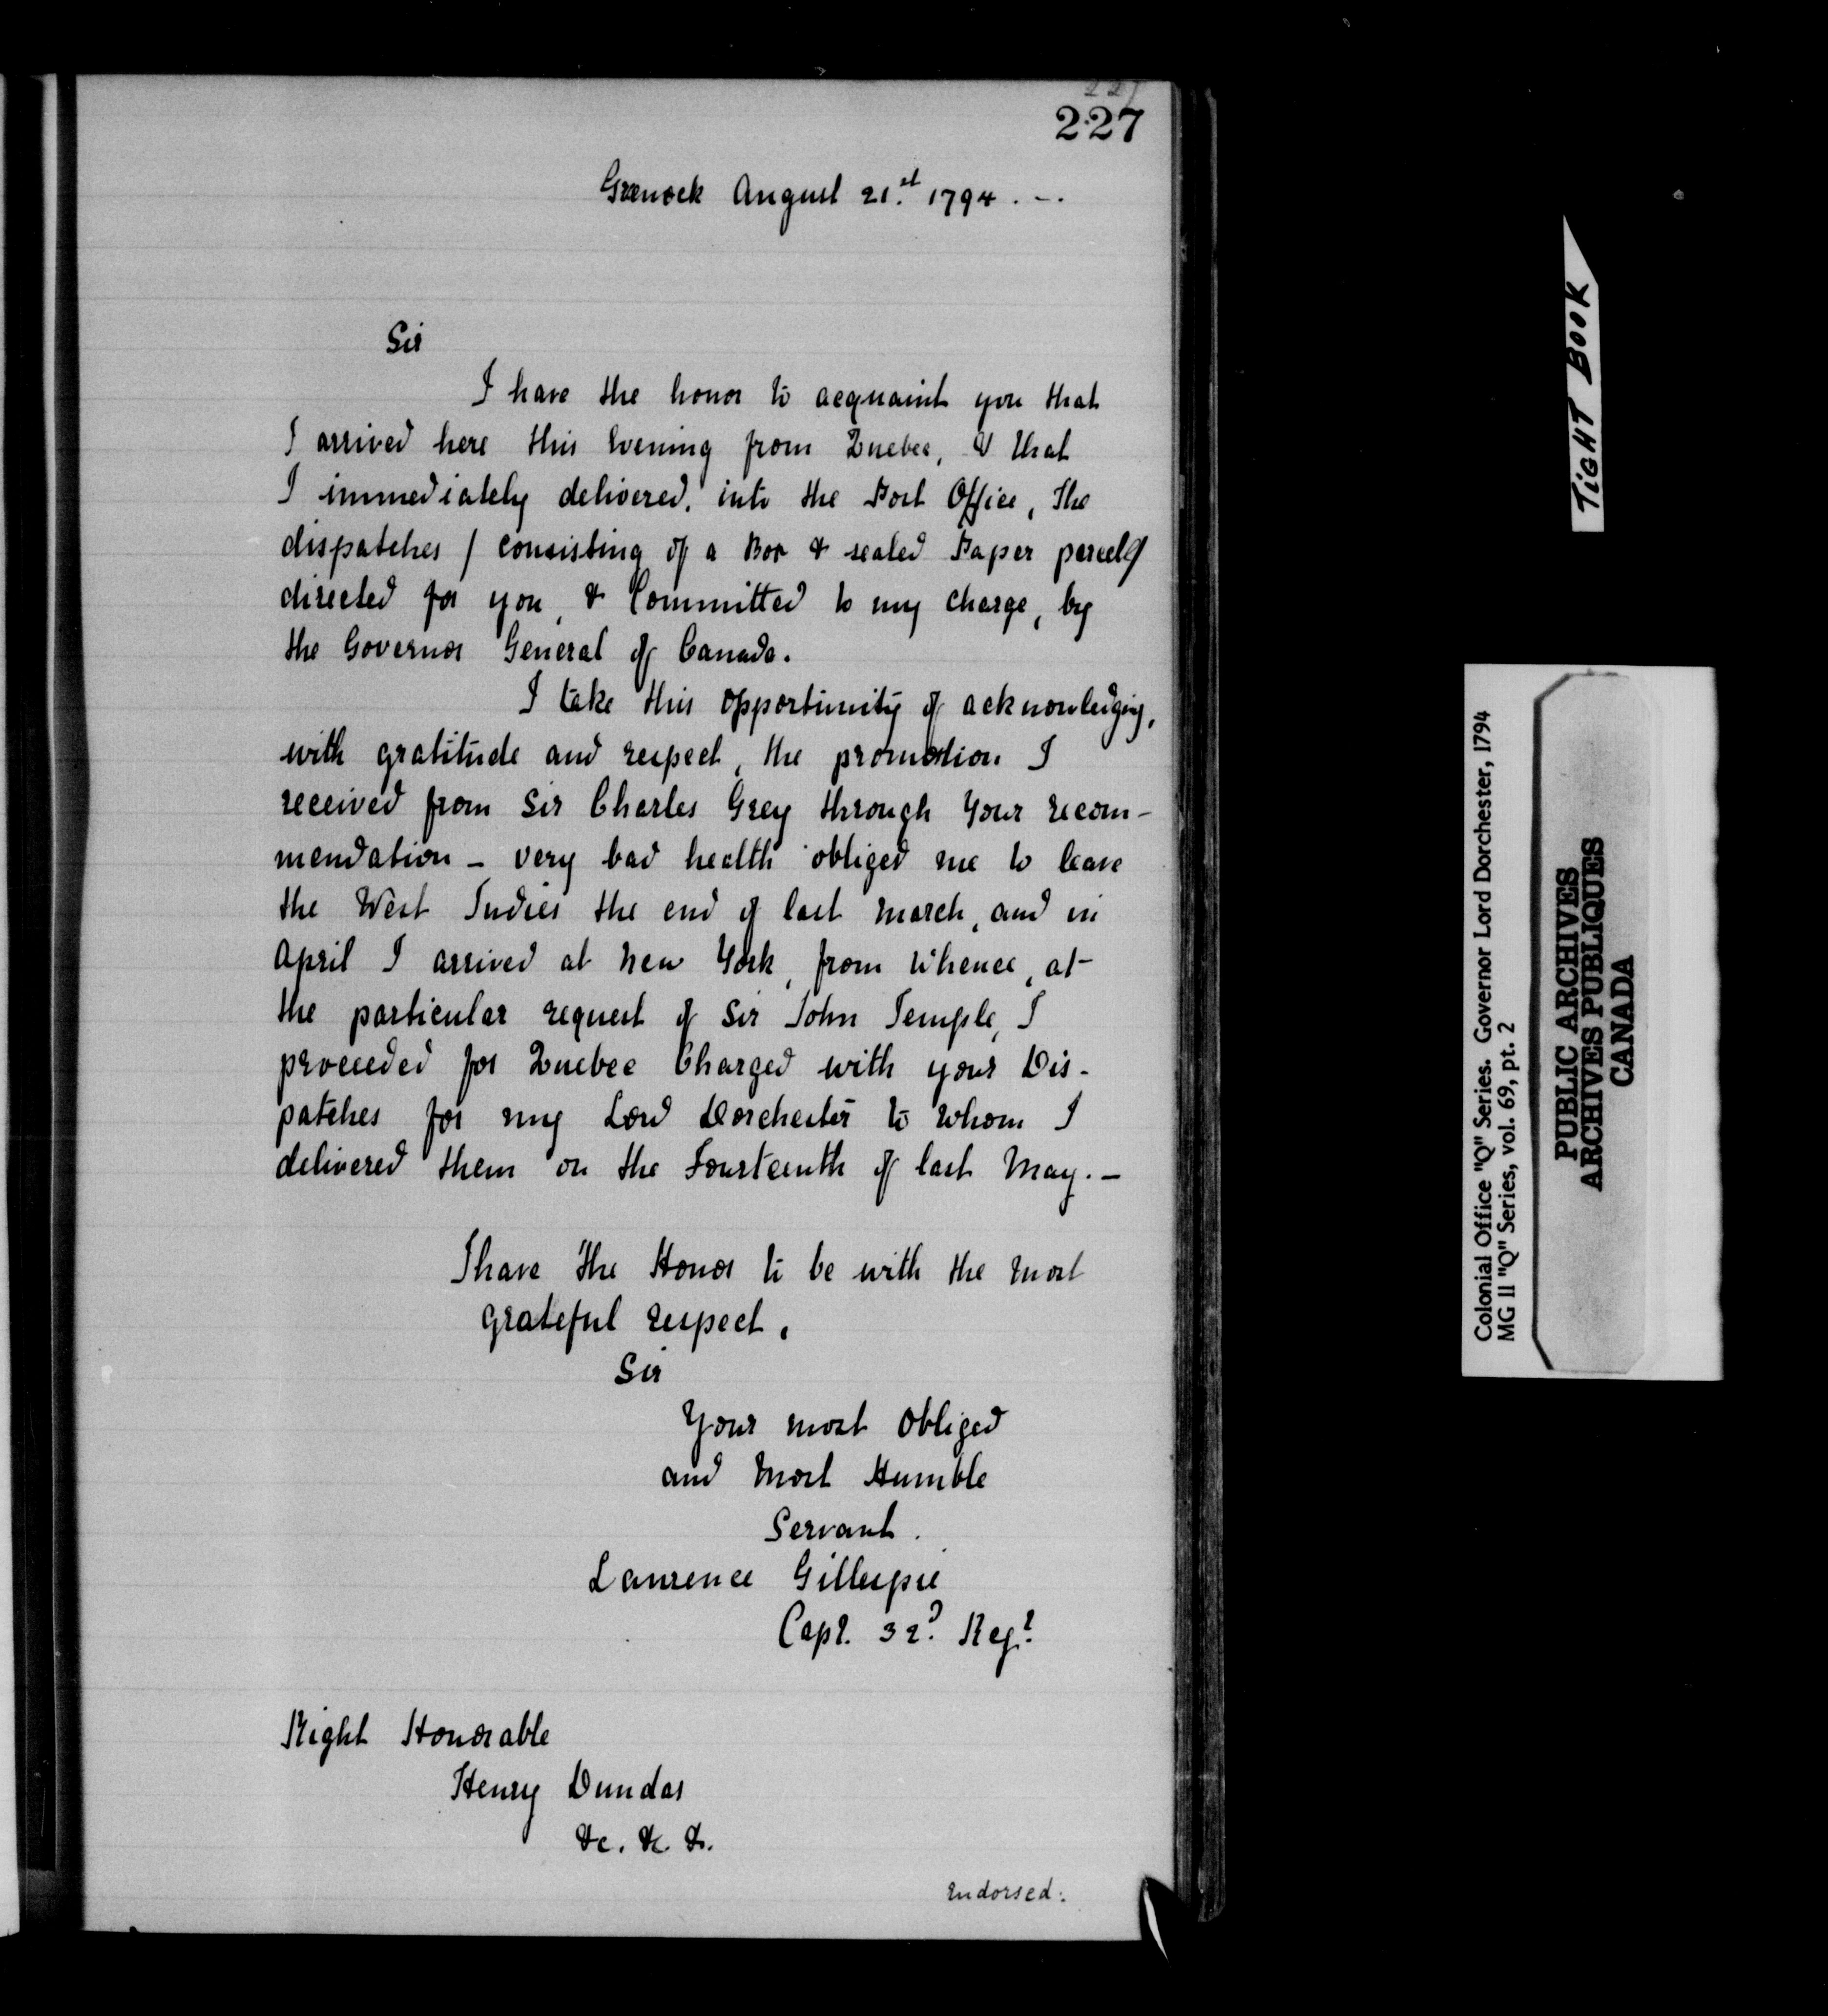 227
227
Greenock August 21.st 1794. -.
Sir
I have the honor to acquaint you that
I arrived here this Evening from Quebec, & that
I immediately delivered, into the Post Office, The
dispatches / consisting of a Box & sealed Paper parcel/
directed for you, & Committed to my charge, by
the Governor General of Canada.
I take this opportunity of acknowledging,
with gratitude and respect, the promotion I
received from Sir Charles Grey through Your recom-
mendation - very bad health obliged me to leave
the West Indies the end of last March, and in
April I arrived at New York, from whence, at
the particular request of Sir John Temple, I
proceeded for Quebec Charged with your Dis-
patches for my Lord Dorchester to whom I
delivered them on the Fourteenth of last May. -
I have the Honor to be with the most
grateful respect,
Sir
Your most Obliged
and Most Humble
Servant.
Laurence Gillespie
Capt. 32d Regt
Right Honorable
Henry Dundas
&c. &c. &c.
Endorsed:
TIGHT BOOK
Colonial Office "Q" Series. Governor Lord Dorchester, 1794
MG 11 "Q" Series, vol. 69, pt. 2
PUBLIC ARCHIVES
ARCHIVES PUBLIQUES
CANADA